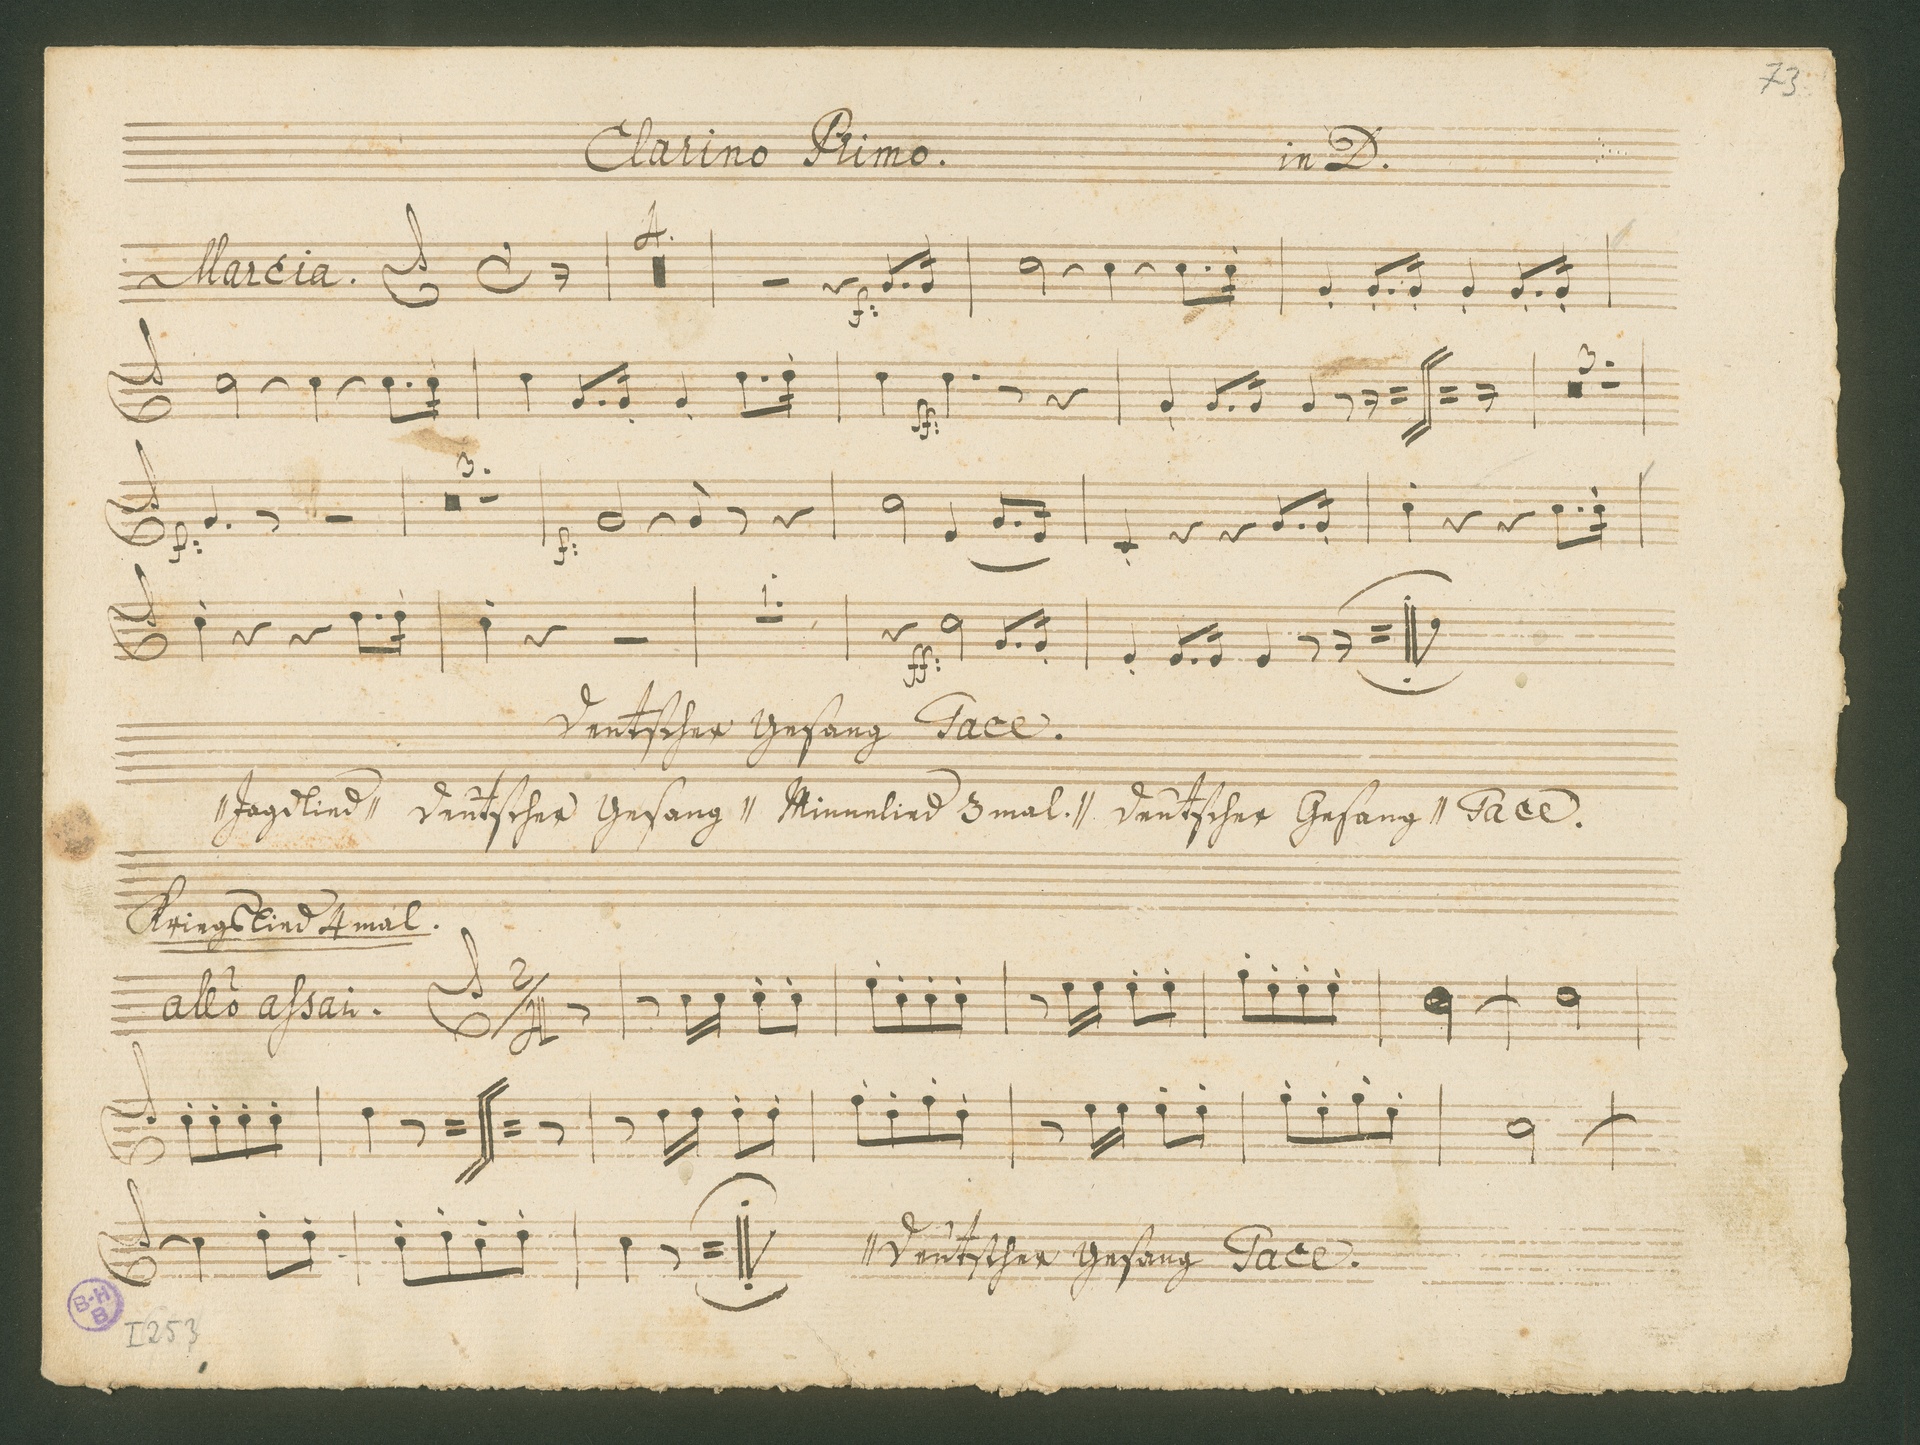 73
Clarino Primo. in D.
Marcia. 4.
f:
3.
ff:
3.
f: f:
1.
ff:
Deutscher Gesang Tace.
"Jagdlied" Deutscher Gesang " Minnelied 3mal." Deutscher Gesang " Tace.
Kriegslied 4mal.
allo assai. 2/4
"Deutscher Gesang Tace.
B-H
B
I253